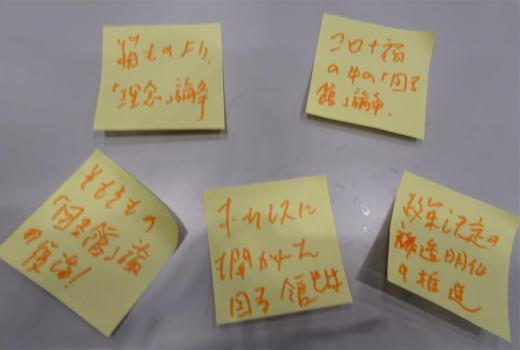 箱ものより、
「理念」論争
コロナ禍
の中の「図書
館」論争.
そもそもの
「図書館」論
の復活!
ホームレスに
開かれた
図書館とは
政策決定の
透明化
の推進